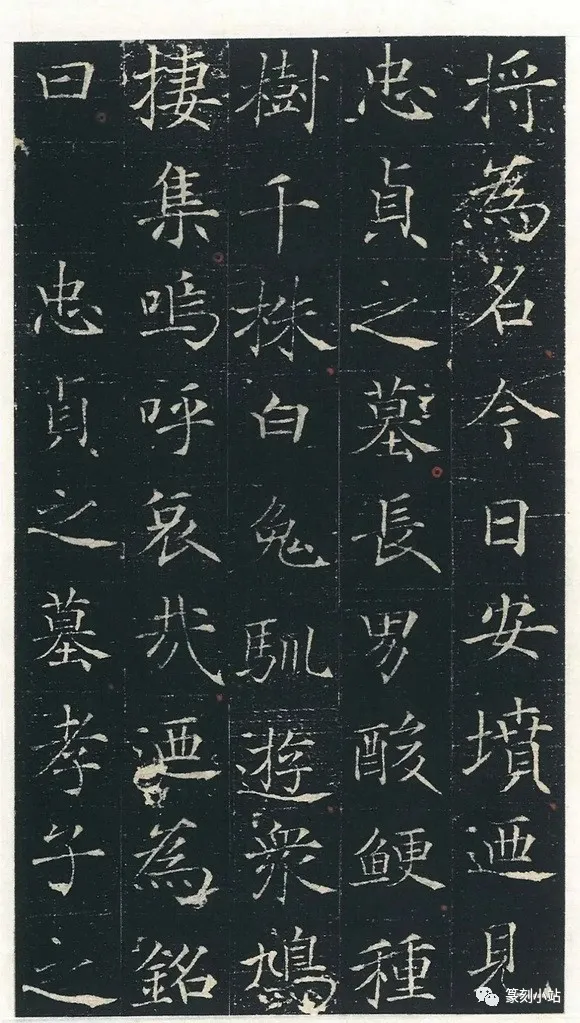 将為名今日安墳迺見
忠貞之墓長男酸鯁種
樹千株白兔馴遊衆鳩
捿集嗚呼哀哉迺為銘
曰 忠貞之墓孝子之
篆刻小站